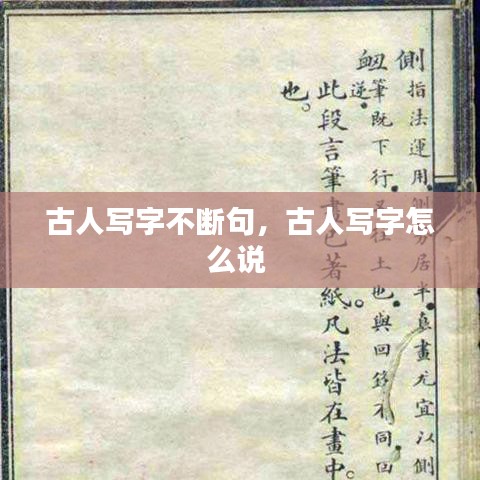 側指法運用居半真畫尤宜以側
衄逆筆既下行又往上也與回鋒不同回
此段言筆畫包著紙凡法皆在畫中
也。
古人写字不断句，古人写字怎
么说